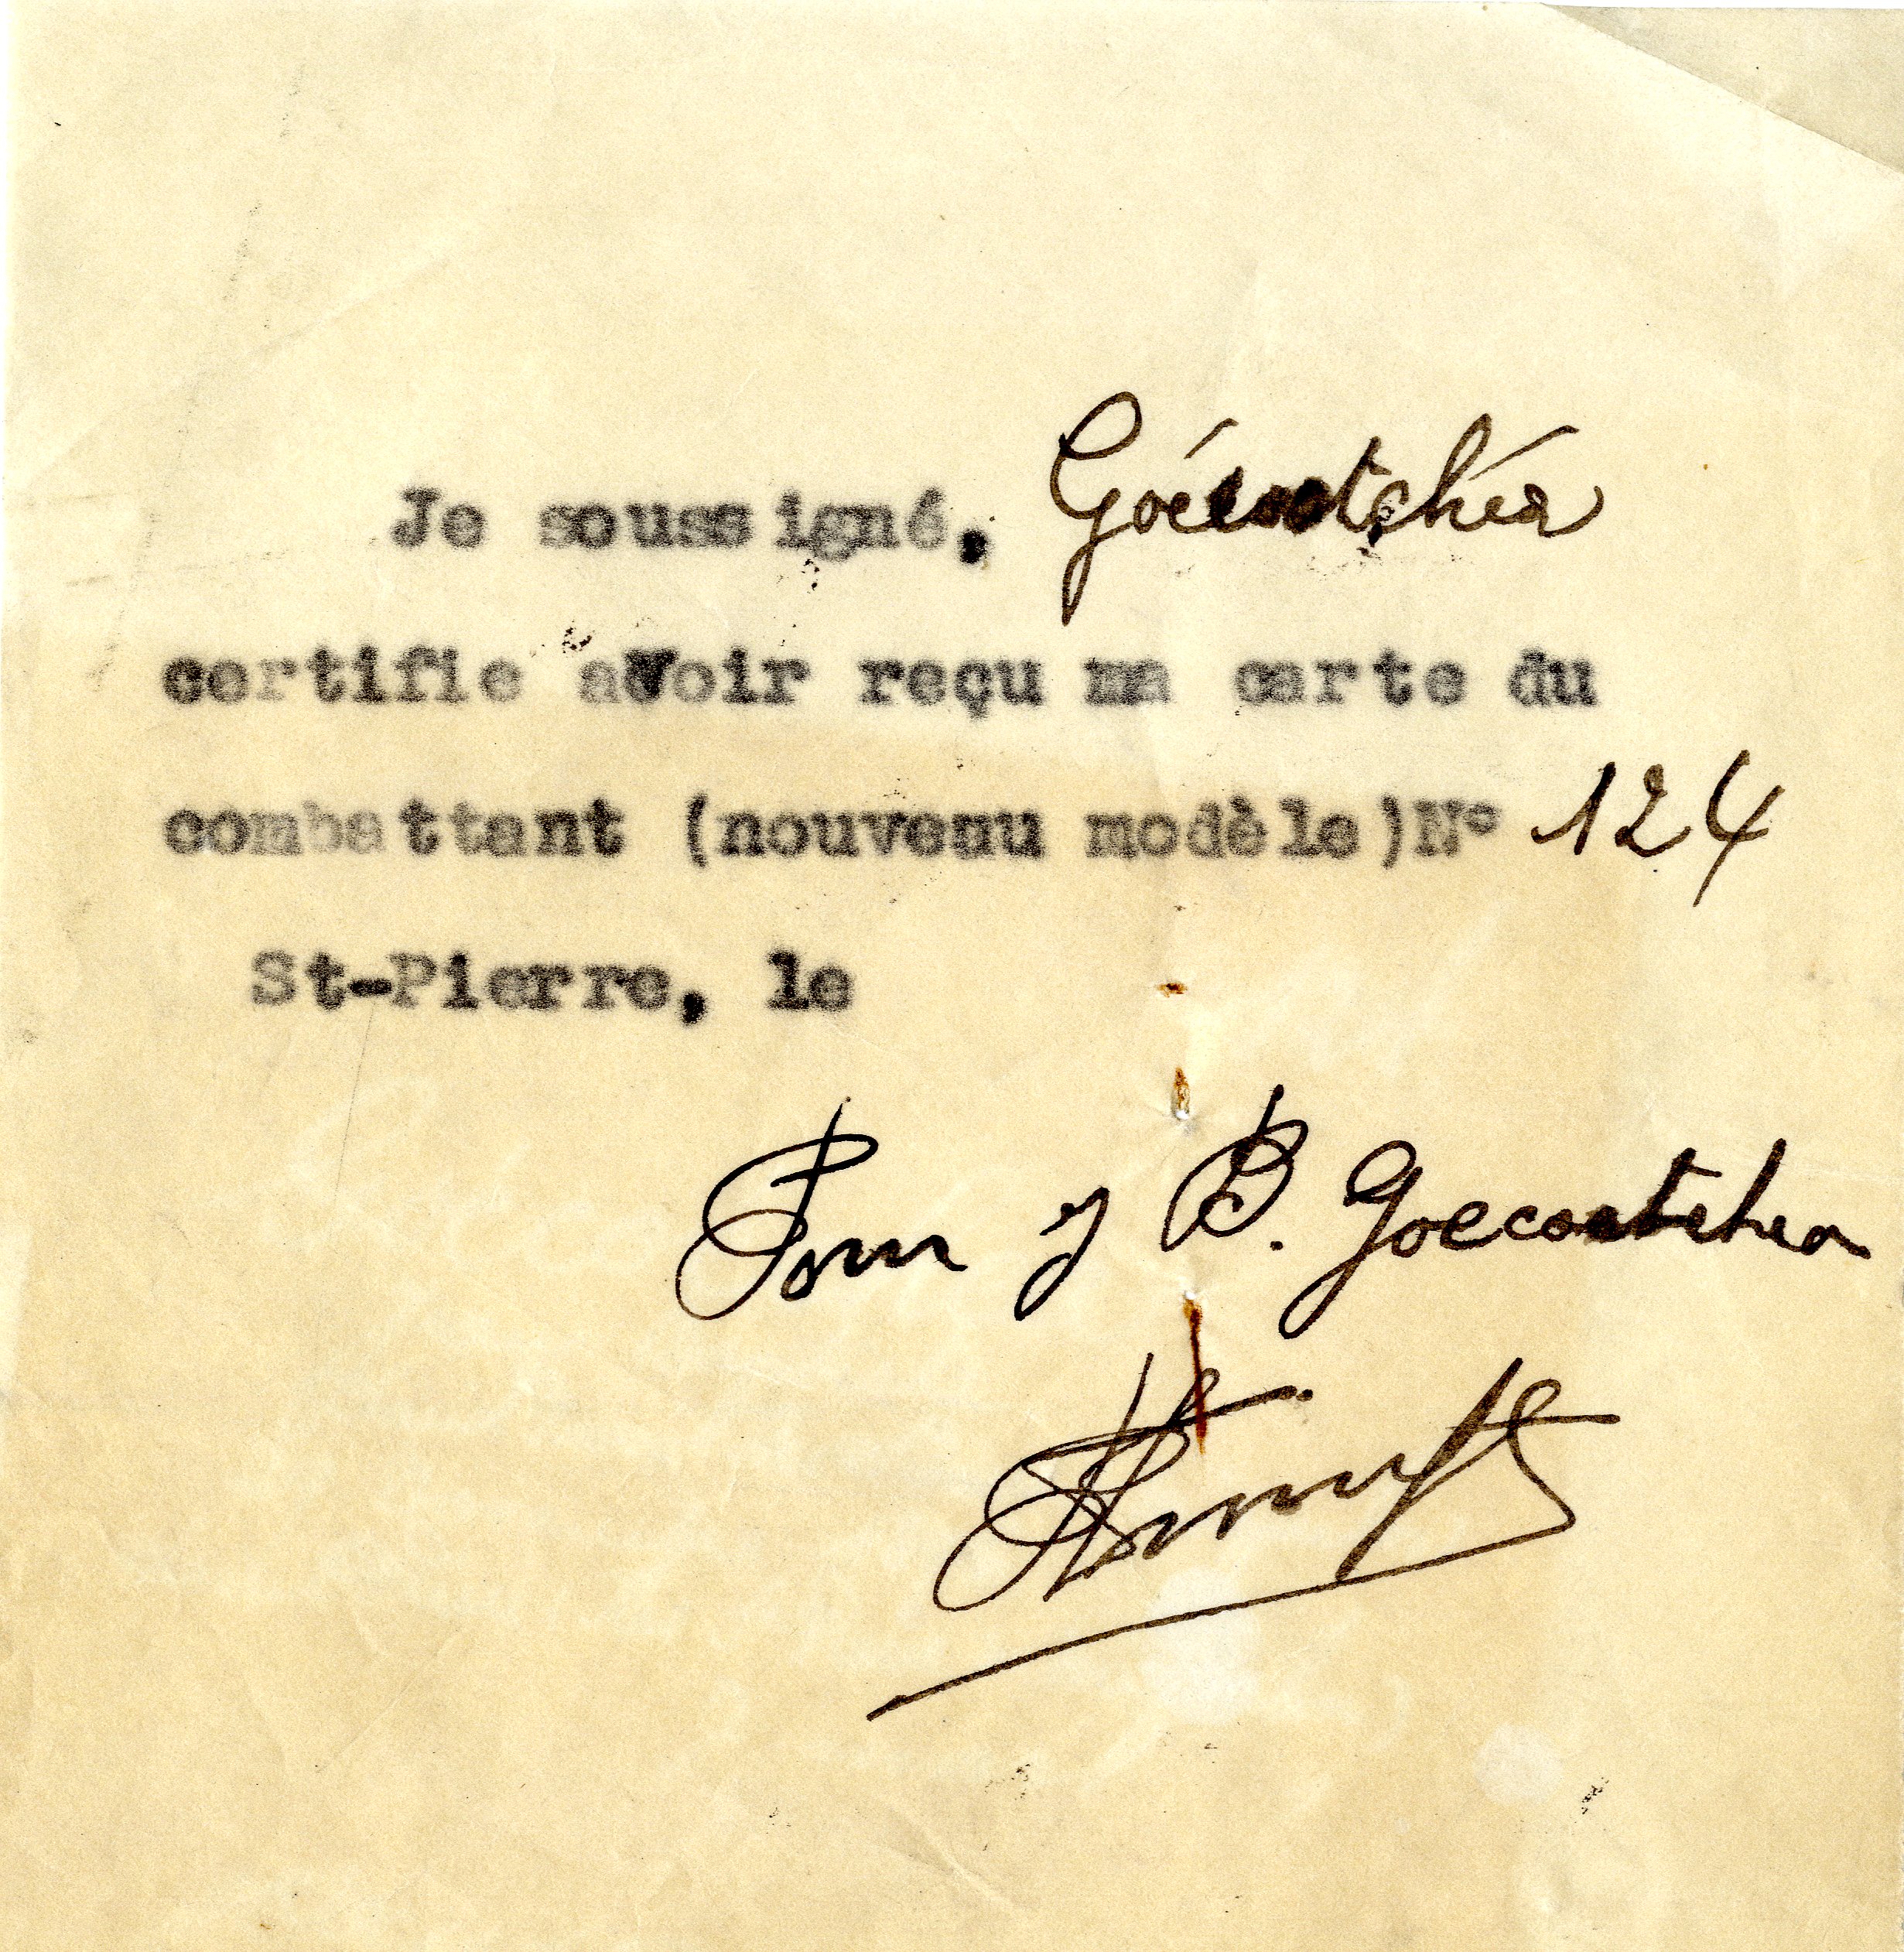 Je soussigné, Goécoetchéa
certifie avoir reçu ma carte du
combattant (nouveau modèle)N° 124
St-Pierre, le
Pour J B. Goecoetchea